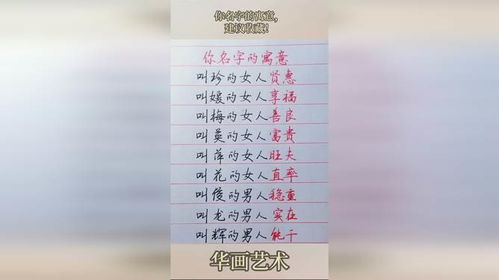 你名字的寓意,
建议收藏!
你名字的寓意
叫珍的女人贤惠
叫媛的女人享福
叫梅的女人善良
叫英的女人富贵
叫萍的女人旺夫
叫花的女人直率
叫俊的男人稳重
叫龙的男人实在
叫辉的男人能干
华画艺术